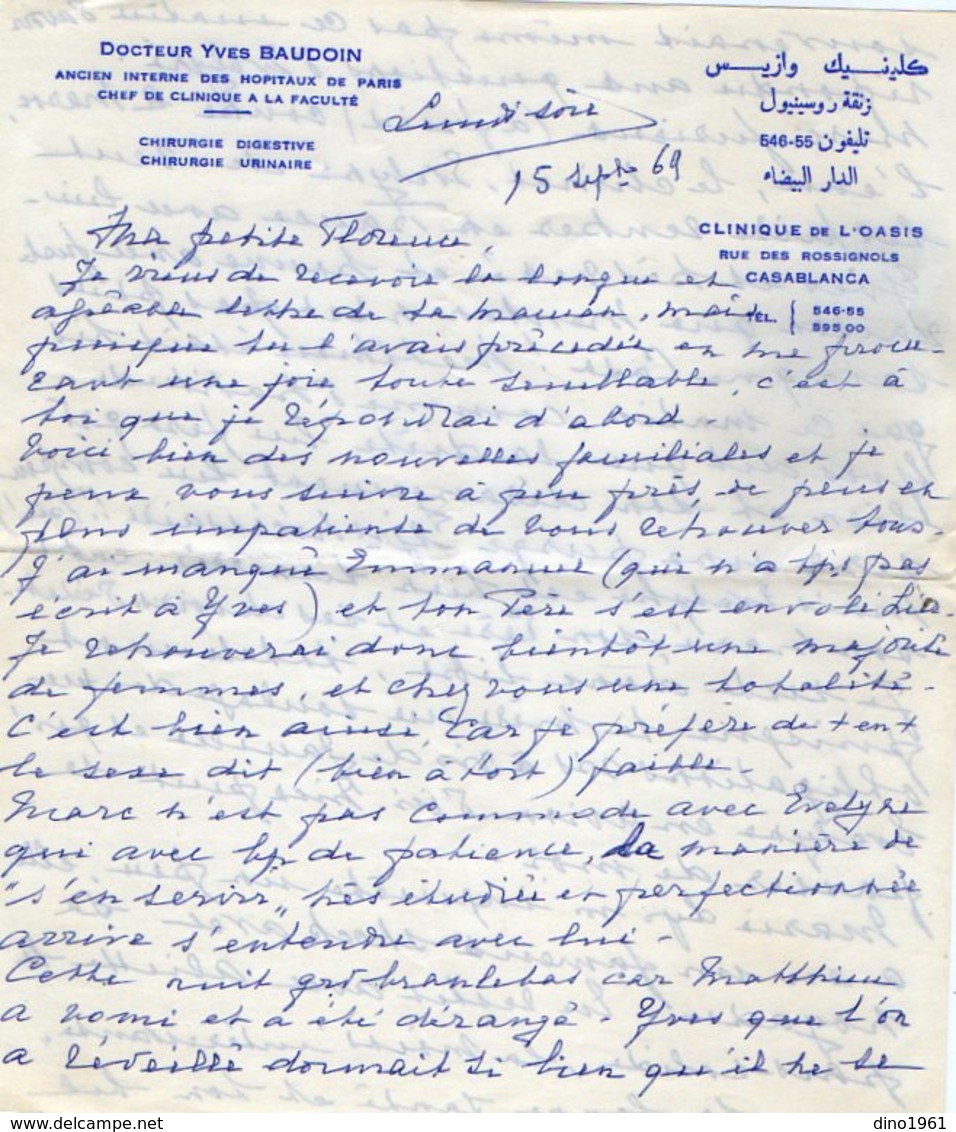 DOCTEUR YVES BAUDOIN
ANCIEN INTERNE DES HOPITAUX DE PARIS
CHEF DE CLINIQUE A LA FACULTÉ
CHIRURGIE DIGESTIVE
CHIRURGIE URINAIRE
كلينيك وازيس
زنقة روسينيول
تليفون 55-546
الدار البيضاء
CLINIQUE DE L'OASIS
RUE DES ROSSIGNOLS
CASABLANCA
TÉL. 546-55
595 00
Lundi soir
15 Septbre 69
Ma petite Florence,
Je viens de recevoir la longue et
agréable lettre de ta maman, mais
puisque tu l'avais précédée en me procu-
rant une joie toute semblable, c'est à
toi que je répondrai d'abord.
Voici bien des nouvelles familiales et je
peux vous suivre à peu près, de plus en
plus impatiente de vous retrouver tous.
J'ai manqué Emmanuel (qui n'a tjs pas
écrit à Yves) et ton Père s'est envolé hier.
Je retrouverai donc bientôt une majorité
de femmes, et chez vous une totalité.
C'est bien ainsi, car je préfère de
le sexe dit (bien à tort) faible.
Marc n'est pas commode avec Evelyne
qui avec bp de patience, la manière de
"s'en servir", très étudiée et perfectionnée
arrive s'entendre avec lui.
Cette nuit gros branlebas car Matthieu
a vomi et a été dérangé. Yves que l'on
a réveillé dormait si bien qu'il ne se
dino1961